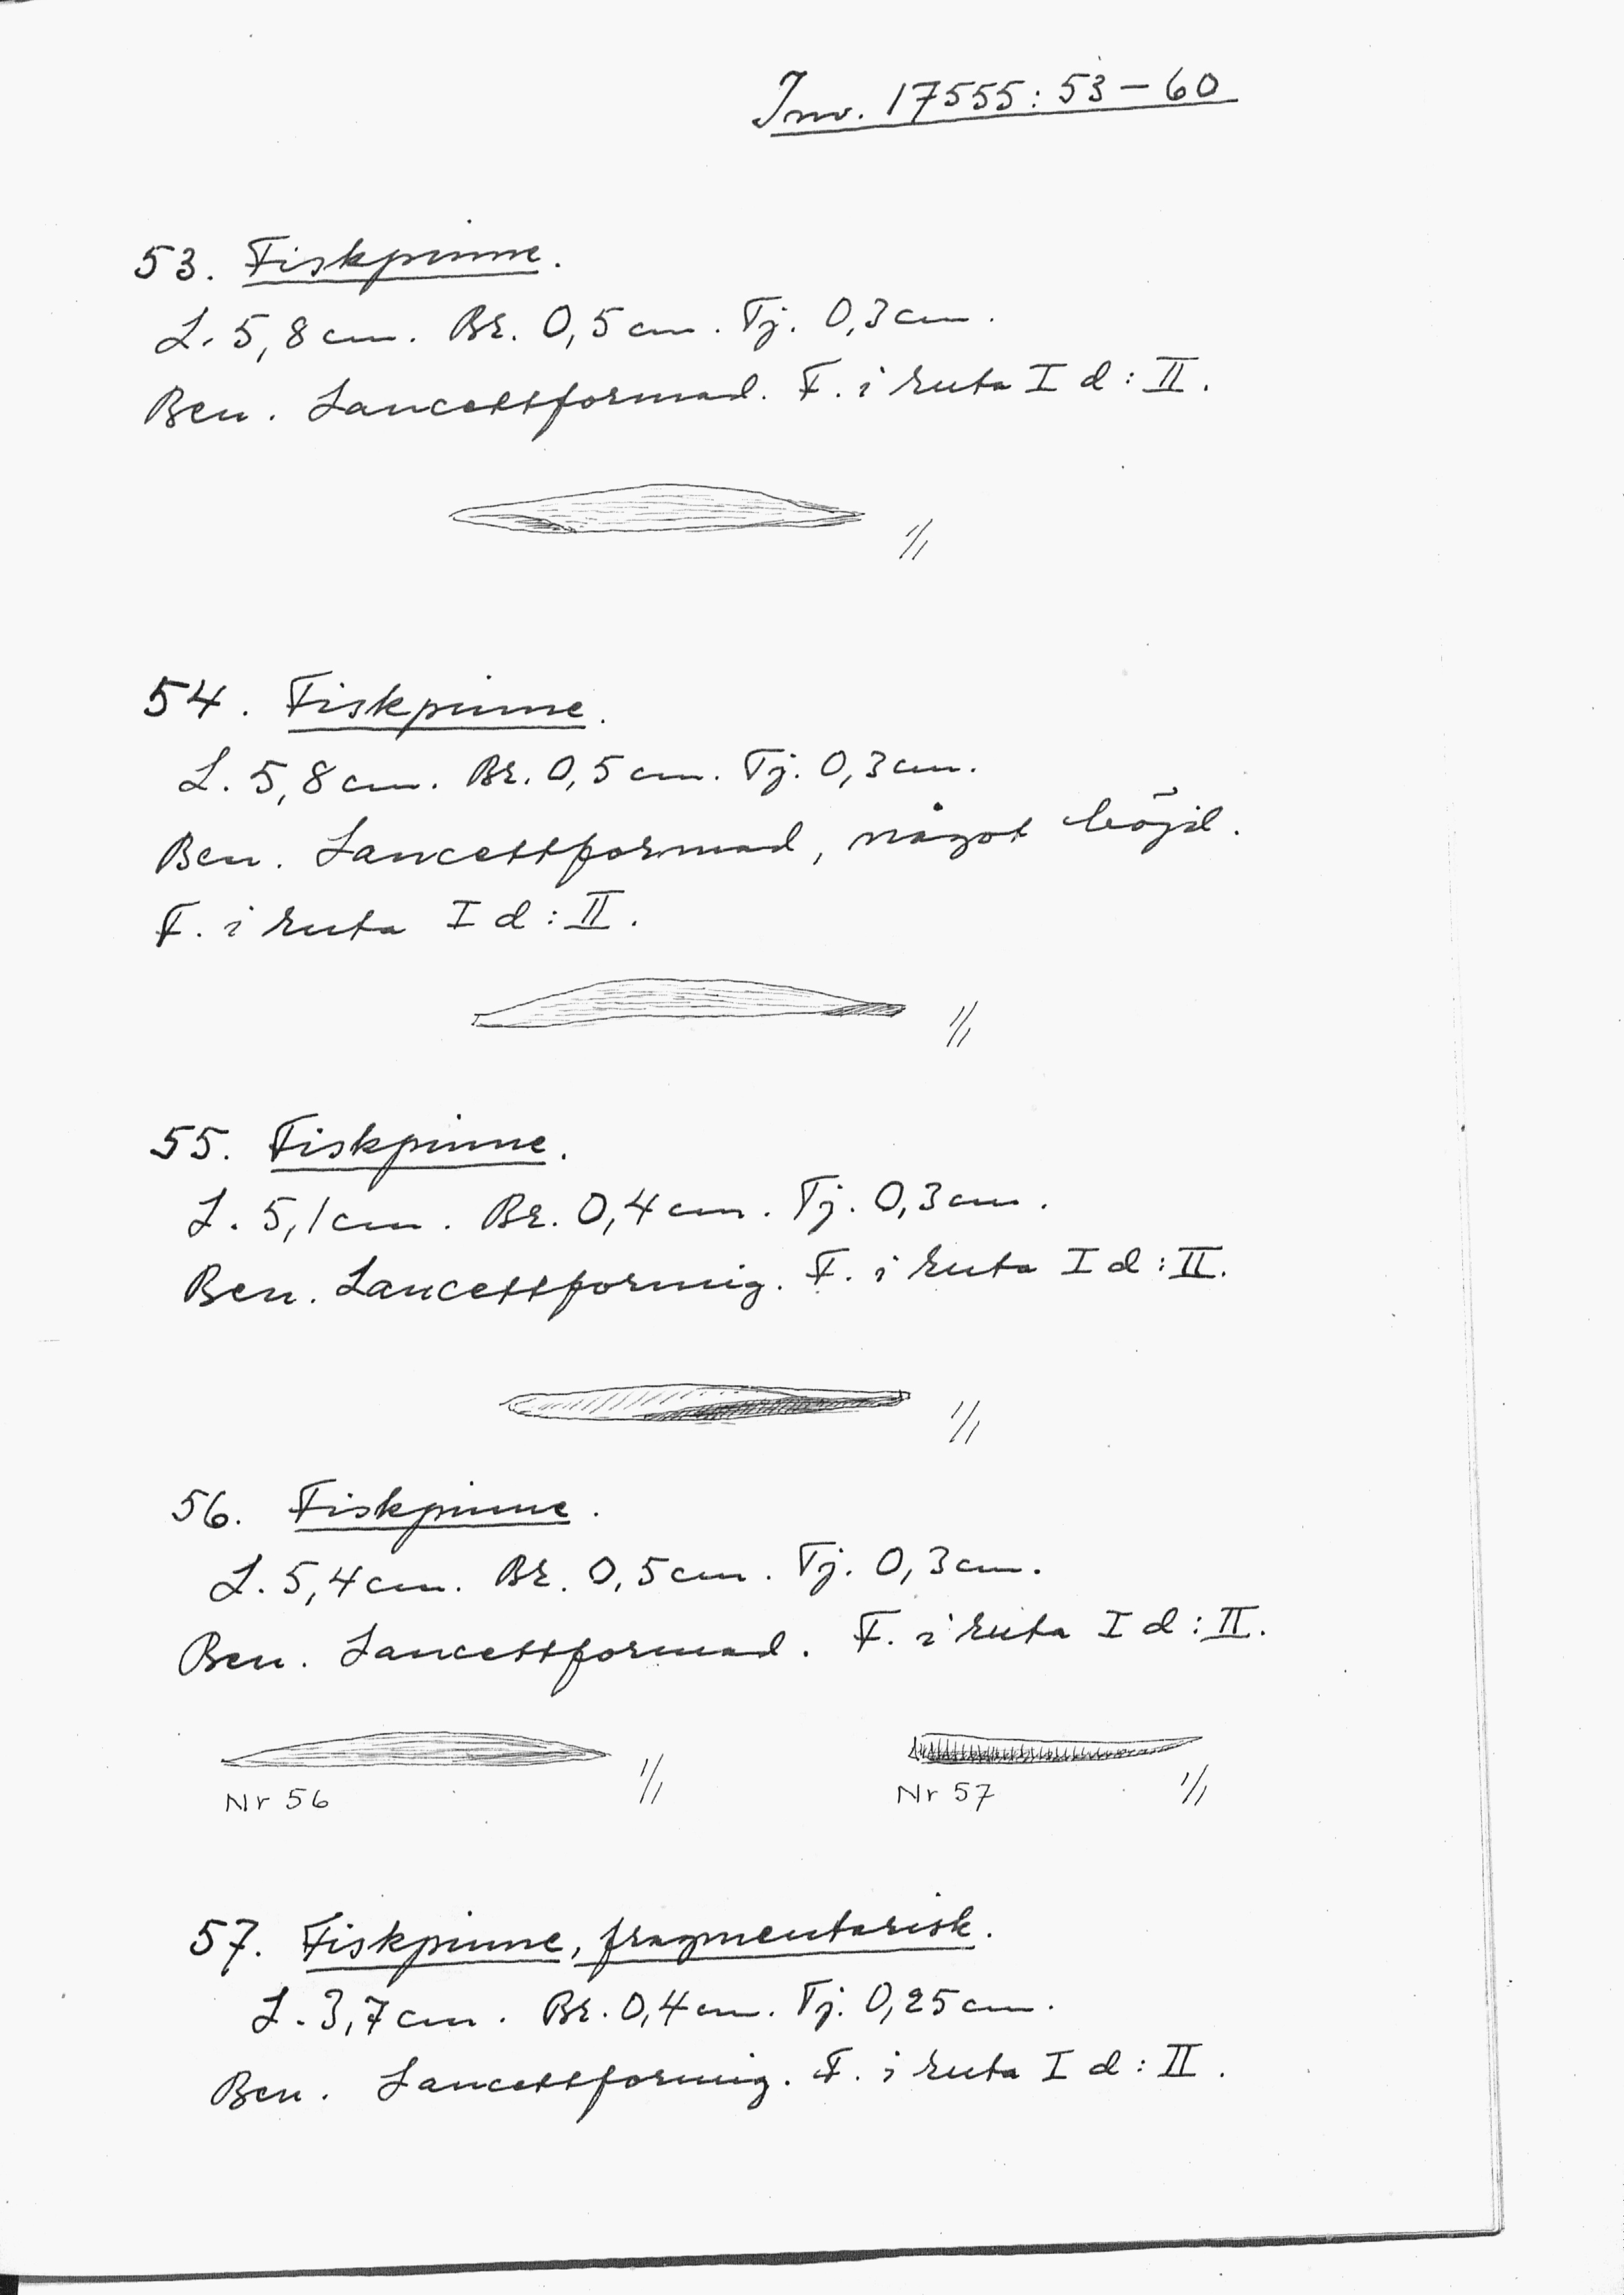 Inv. 17555:53–60
53. Fiskpinne.
L. 5,8 cm. Br. 0,5 cm. Tj. 0,3 cm.
Ben. Lancettformad. F. i ruta I d:II.
1/1
54. Fiskpinne.
L. 5,8 cm. Br. 0,5 cm. Tj. 0,3 cm.
Ben. Lancettformad, något böjd.
F. i ruta I d:II.
1/1
55. Fiskpinne.
L. 5,1 cm. Br. 0,4 cm. Tj. 0,3 cm.
Ben. Lancettformig. F. i ruta I d:II.
1/1
56. Fiskpinne.
L. 5,4 cm. Br. 0,5 cm. Tj. 0,3 cm.
Ben. Lancettformad. F. i ruta I d:II.
Nr 56 1/1 Nr 57 1/1
57. Fiskpinne, fragmentarisk.
L. 3,7 cm. Br. 0,4 cm. Tj. 0,25 cm.
Ben. Lancettformig. F. i ruta I d:II.